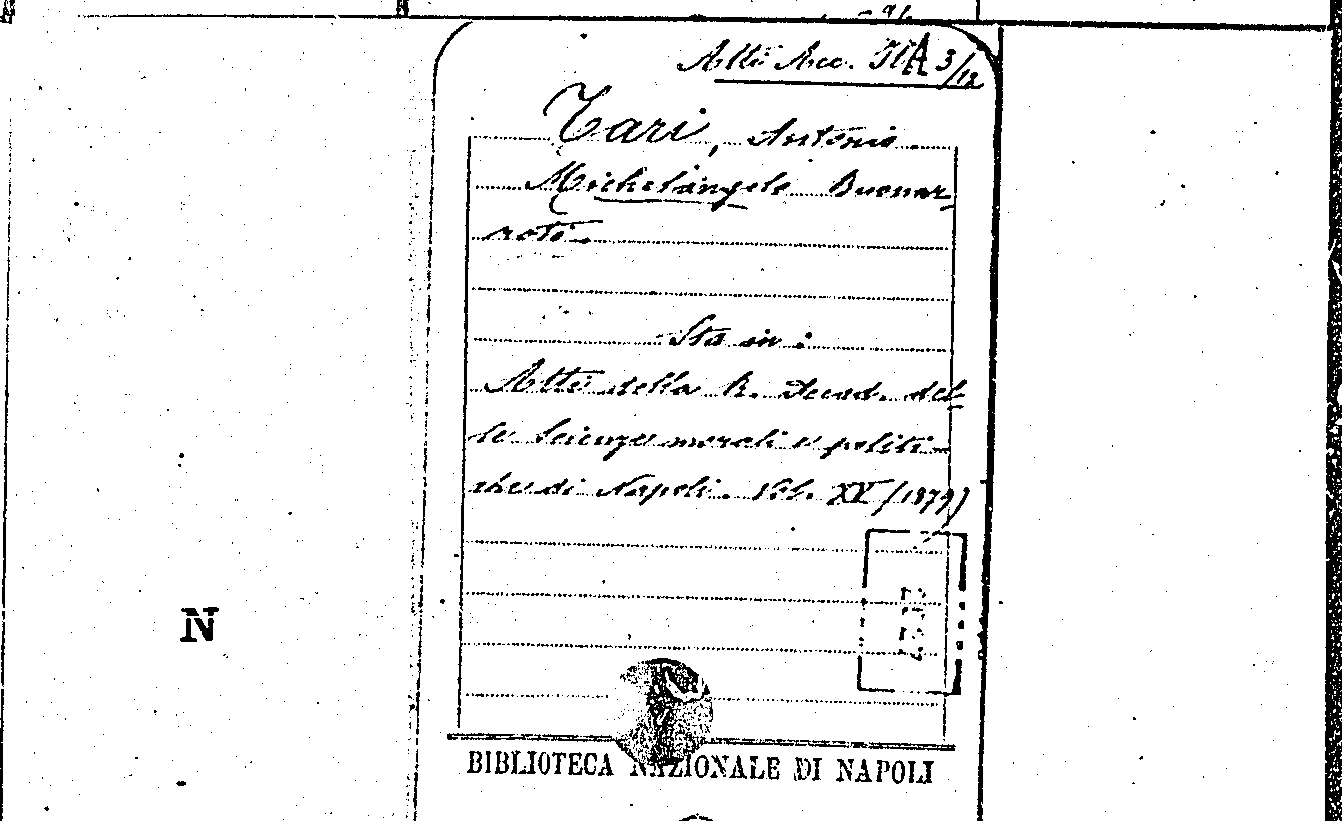 Atti Acc. III A 3/12
Tari, Antonio
Michelangelo Buonar-
roti.
Sta in:
Atti della R. Accad. del-
le Scienze morali e politi-
che di Napoli. Vol. XV (1879)
N
BIBLIOTECA NAZIONALE DI NAPOLI